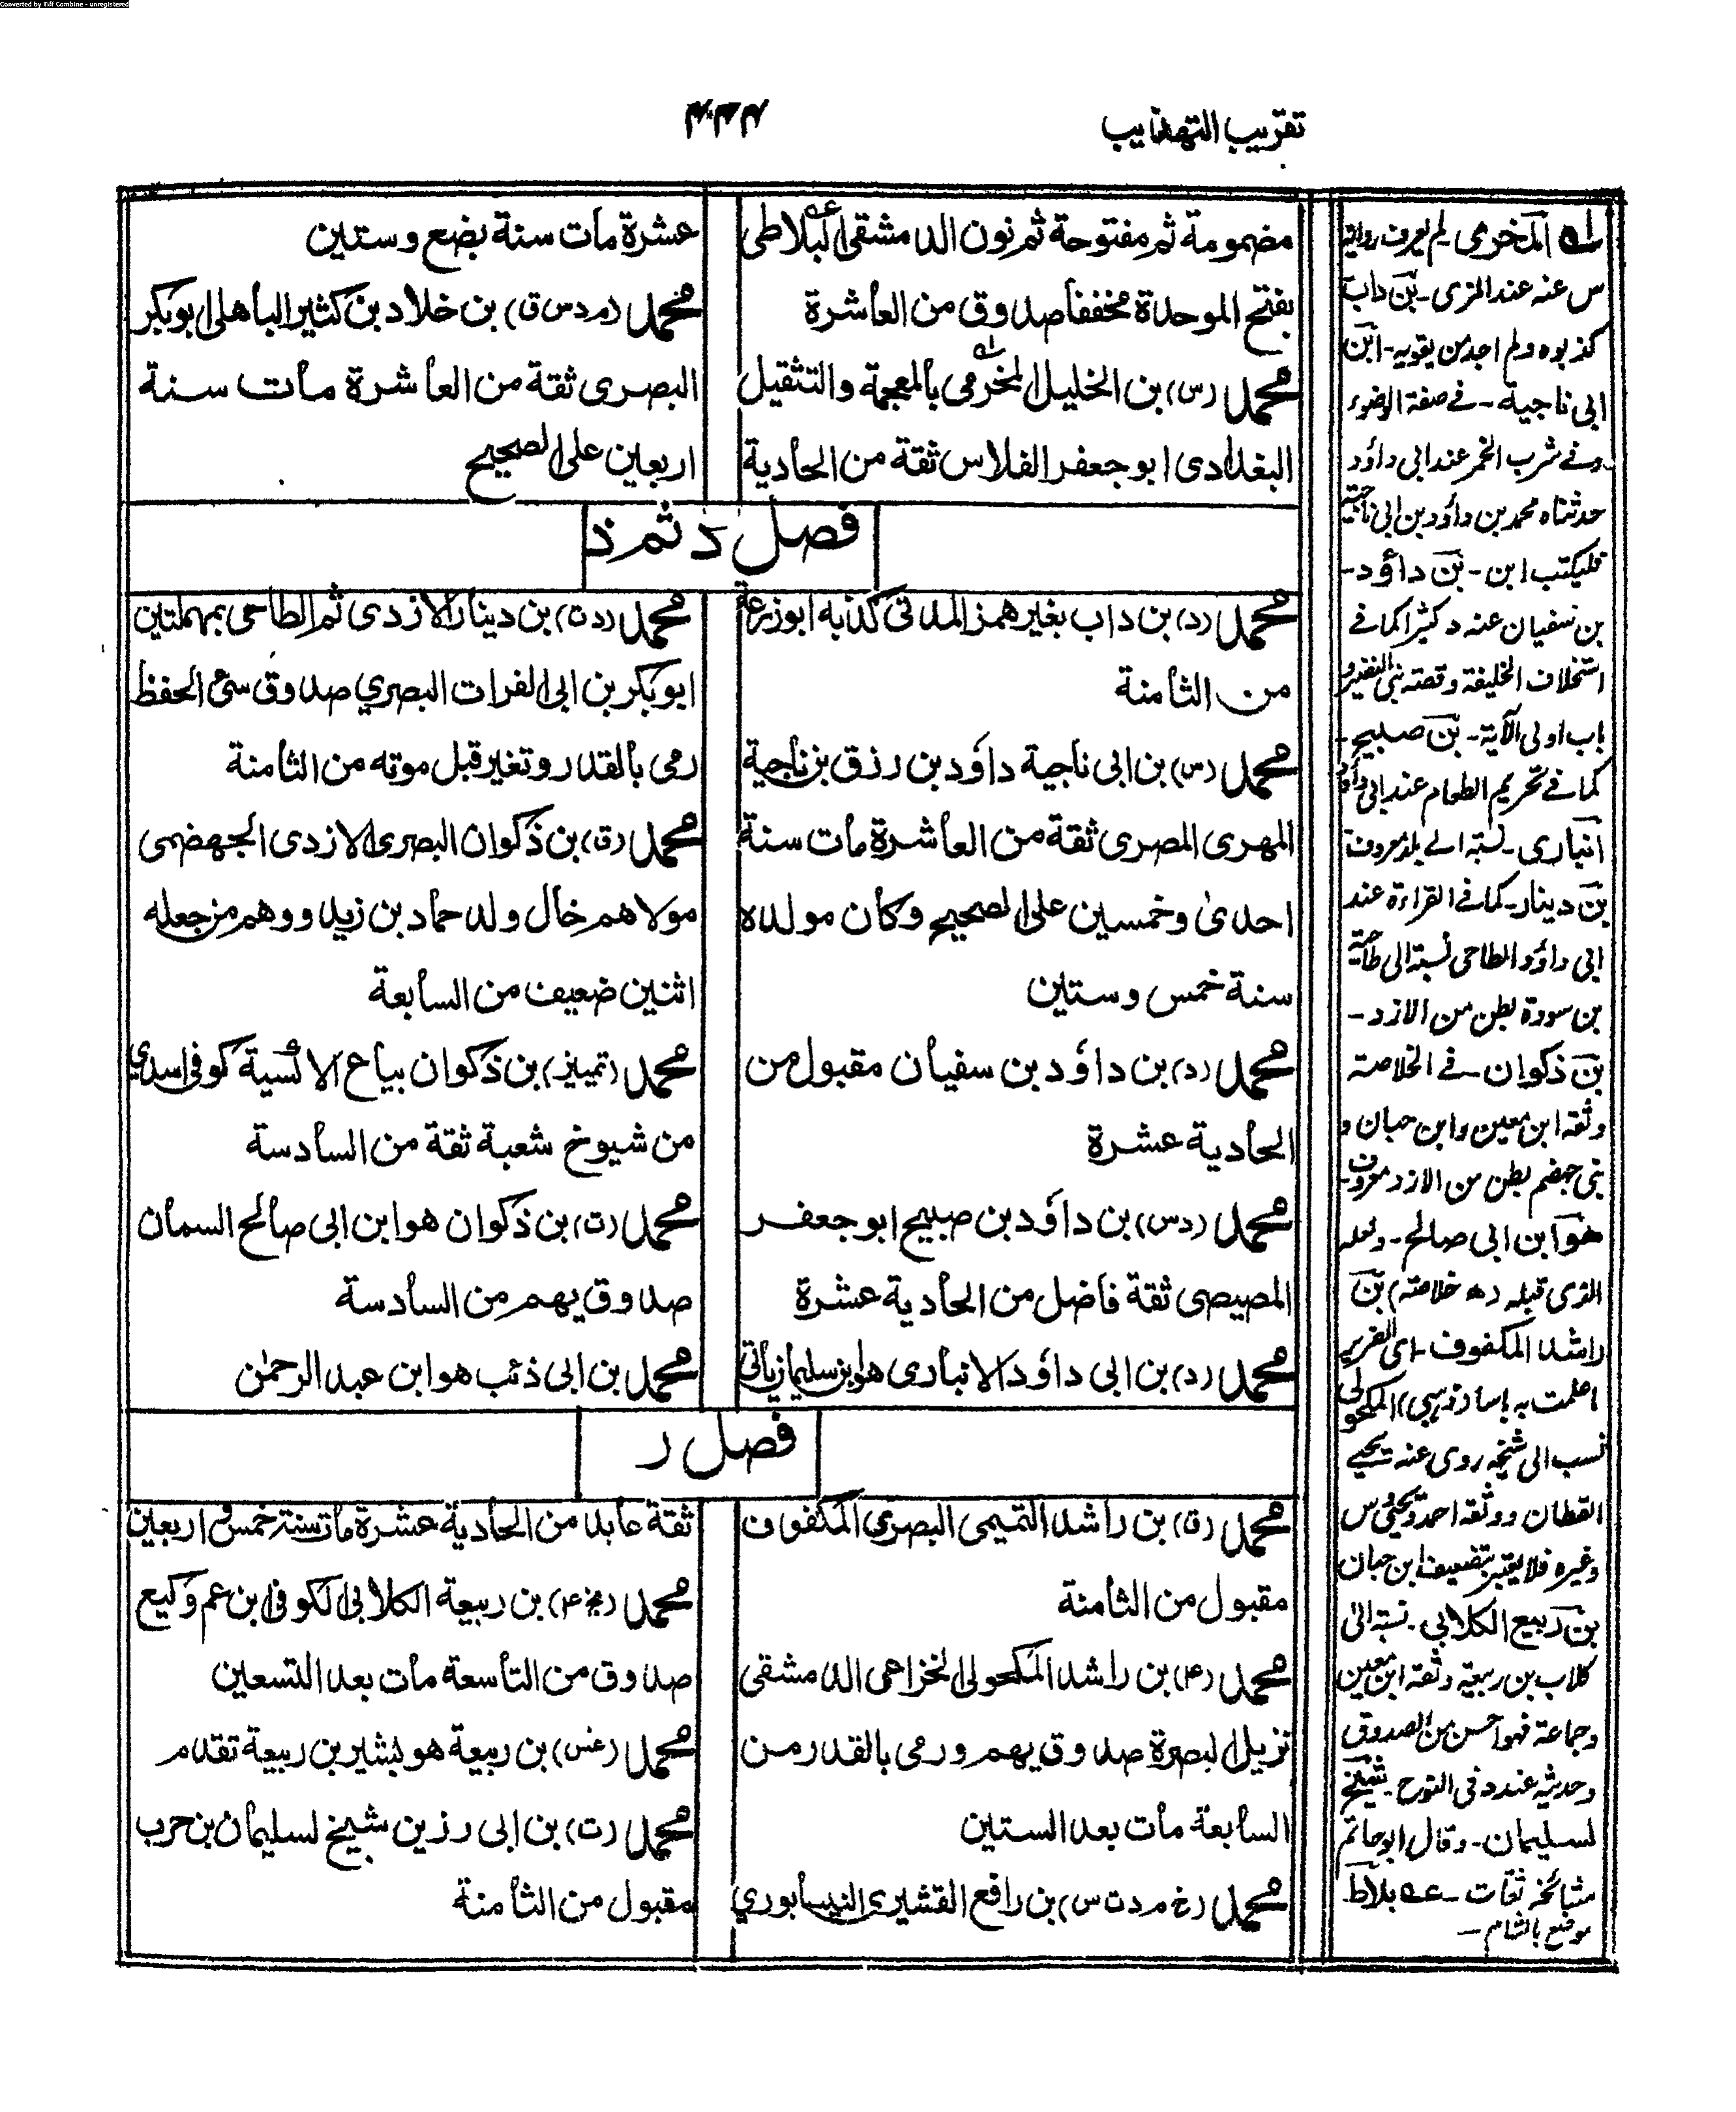 Converted by Tiff Combine - unregistered
تقريب التهذيب
مضمومة ثم مفتوحة ثم نون الدمشقى البلاطى
بفتح الموحدة مخففا صدوق من العاشرة
محمد (س) بن الخليل المخرمى بالمعجمة والتثقيل
البغدادى ابو جعفر الفلاس ثقة من الحادية
عشرة مات سنة بضع وستين
محمد (م د س ق) بن خلاد بن كثير الباهلى ابو بكر
البصرى ثقة من العاشرة مات سنة
اربعين على الصحيح
فصل د ثم ذ
محمد (د) بن داب بغير همز المدنى كذبه ابو زرعة
من الثامنة
محمد (س) بن ابى ناجية داؤد بن رزق بن ناجية
المهرى المصرى ثقة من العاشرة مات سنة
احدى وخمسين على الصحيح وكان مولده
سنة خمس وستين
محمد (د) بن داؤد بن سفيان مقبول من
الحادية عشرة
محمد (د س) بن داؤد بن صبيح ابو جعفر
المصيصى ثقة فاضل من الحادية عشرة
محمد (د) بن ابى داؤد الانبارى هو ابن سليمان ياتى
محمد (د ت) بن دينار الازدى ثم الطاحى بمهملتين
ابو بكر بن ابى الفرات البصري صدوق سئ الحفظ
رمى بالقدر وتغير قبل موته من الثامنة
محمد (ق) بن ذكوان البصرى الازدى الجهضمى
مولاهم خال ولد حماد بن زيد ووهم من جعله
اثنين ضعيف من السابعة
محمد (تمييز) بن ذكوان بياع الاكسية كوفى اسدي
من شيوخ شعبة ثقة من السادسة
محمد (ت) بن ذكوان هو ابن ابى صالح السمان
صدوق يهم من السادسة
محمد بن ابى ذئب هو ابن عبد الرحمن
فصل ر
محمد (ق) بن راشد التميمى البصري المكفوف
مقبول من الثامنة
محمد (٤) بن راشد المكحولى الخزاعى الدمشقى
نزيل البصرة صدوق يهم ورمى بالقدر من
السابعة مات بعد الستين
محمد (خ م د ت س) بن رافع القشيرى النيسابوري
ثقة عابد من الحادية عشرة مات سنة خمس و اربعين
محمد بن ربيعة الكلابى الكوفى ابن عم وكيع
صدوق من التاسعة مات بعد التسعين
محمد (عس) بن ربيعة هو بشير بن ربيعة تقدم
محمد (ت) بن ابى رزين شيخ لسليمان بن حرب
مقبول من الثامنة
المخرمى لم يعرف رواية
س عنه عند المزى - بن داب
كذبوه ولم اجد من يقويه - ابن
ابى ناجية - فى صفة الوضوء
وفى شرب الخمر عند ابى داؤد
حدثناه محمد بن داؤد بن ابى ناجية
فليكتب ابن - بن داؤد -
بن سفيان عنه د كثيرا كما فى
استخلاف الخليفة وقصة بنى النضير و
باب اولى الآية - بن صبيح -
كما فى تحريم الطعام عند ابى داؤد
انبارى - نسبة الى بلد معروف
بن دينار - كما فى القراءة عند
ابى داؤد الطاحى نسبة الى طاحية
بن سودة بطن من الازد -
بن ذكوان - فى الخلاصة
وثقه ابن معين وابن حبان و
بنى جهضم بطن من الازد معروف
هو ابن ابى صالح - ولعله
الذى قبله (خلاصة) بن
راشد المكفوف - اى الضرير
المكحولى
نسب الى شيخه روى عنه يحيى
القطان ووثقه احمد ويحيى و س
وغيره فلا يعتبر بتضعيف ابن حبان
بن ربيع الكلابى - نسبة الى
كلاب بن ربيعة وثقه ابن معين
وجماعة فهو احسن من الصدوق
وحديثه عند د فى - شيخ
لسليمان - وقال ابو حاتم
مشائخه ثقات - عه بلاط
موضع بالشام -